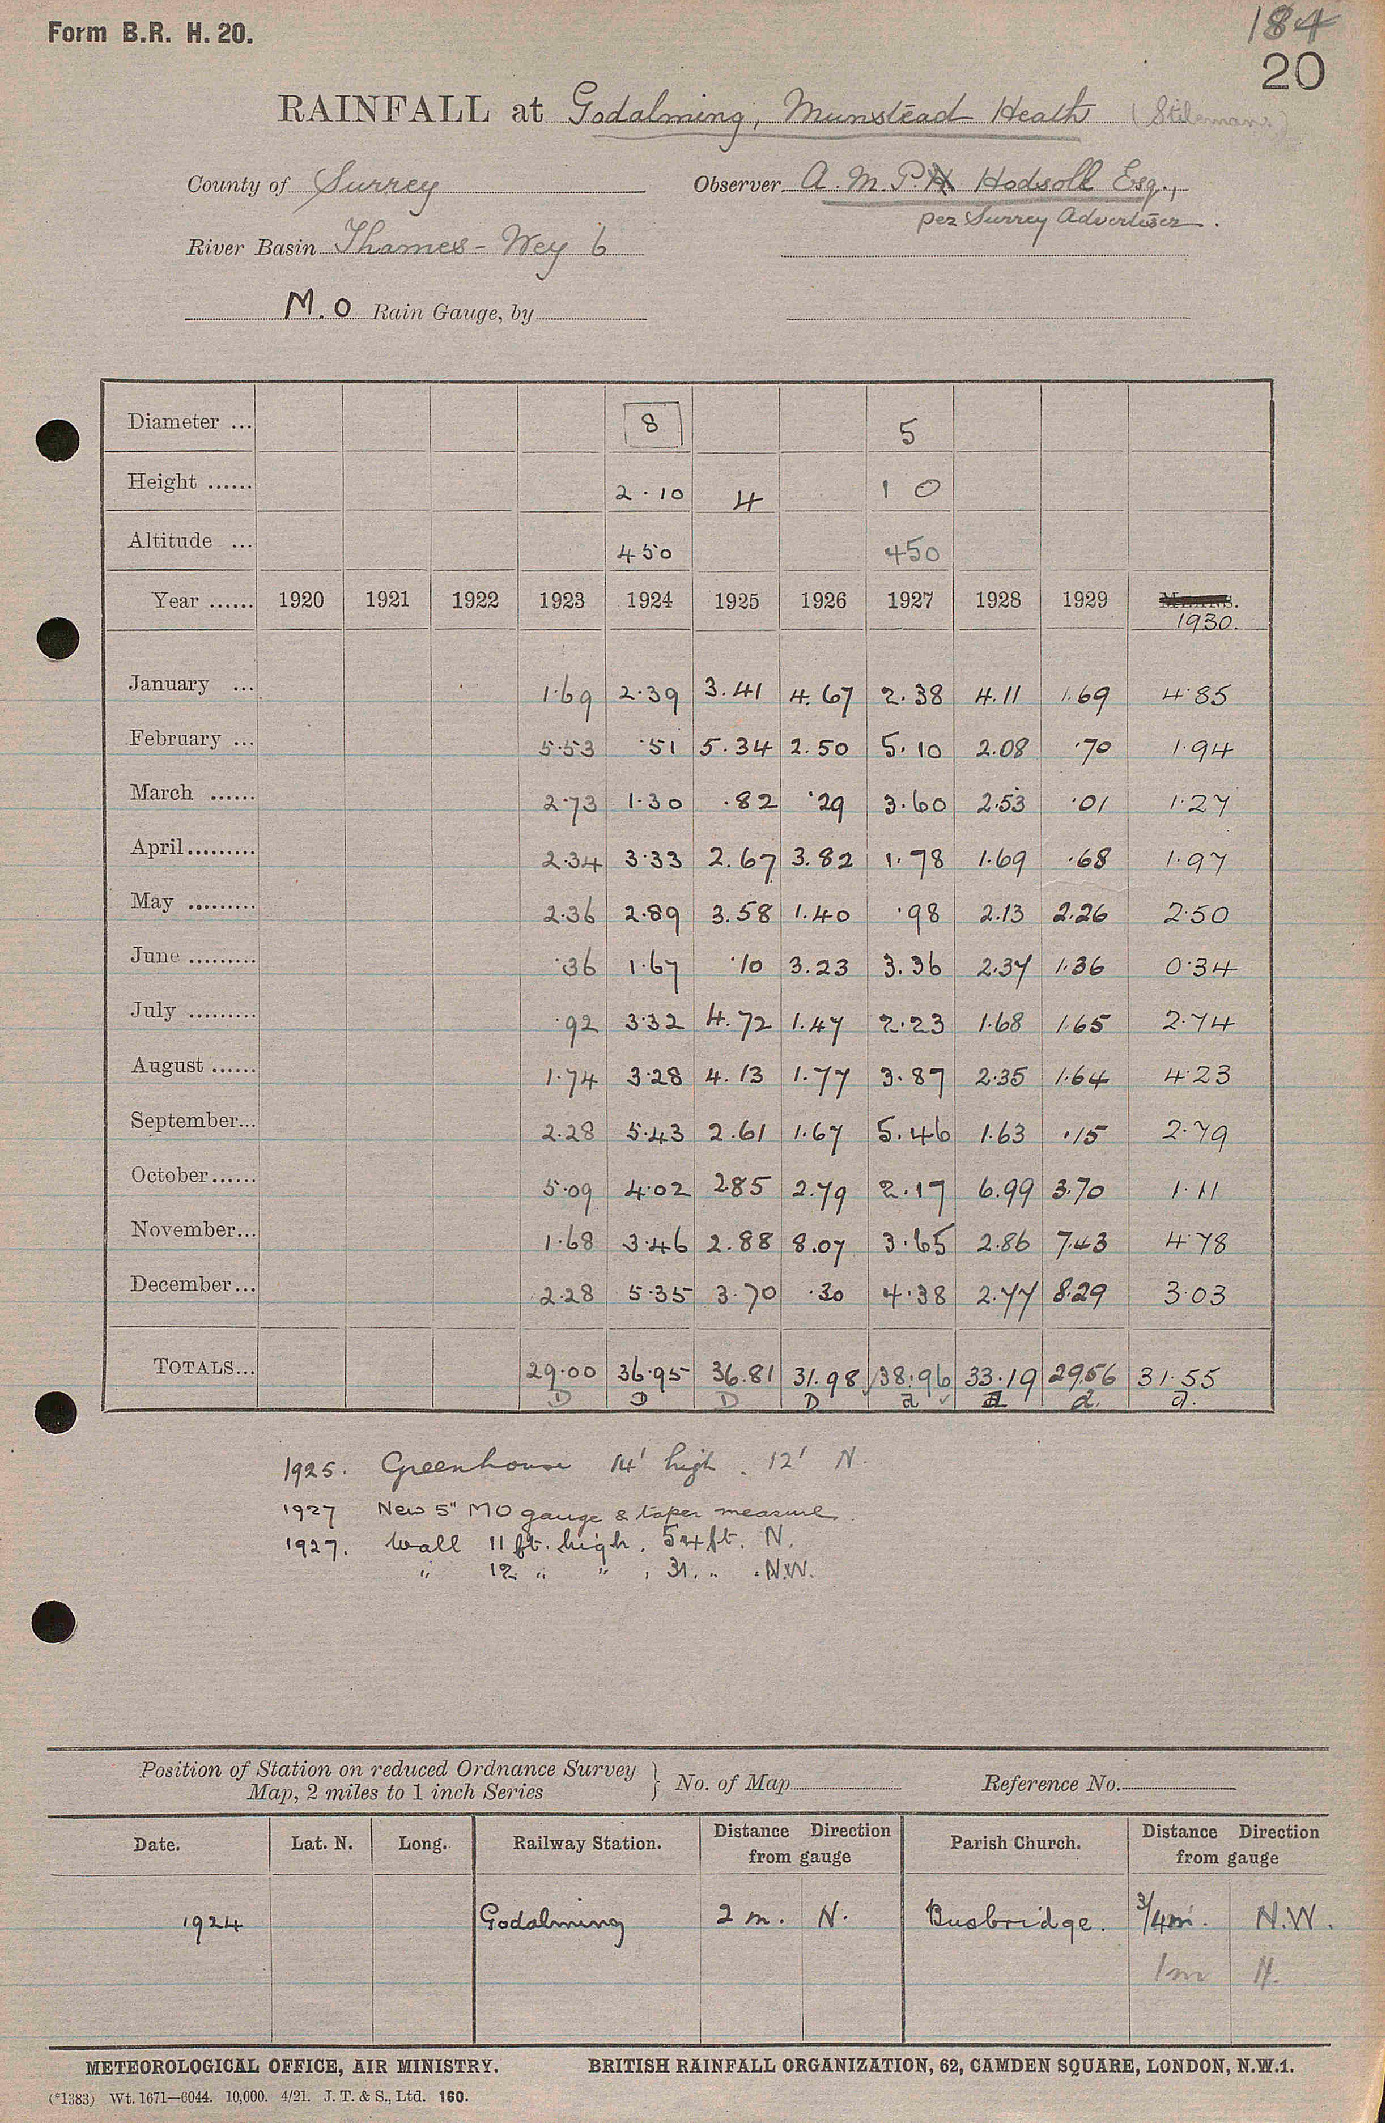 Form B.R. H. 20.
184
20
RAINFALL at Godalming, Munstead Heath (Stilemans)
County of Surrey Observer A. M. P. Hodsoll Esq.,
per Surrey Advertiser.
River Basin Thames - Wey 6
M.O Rain Gauge, by
Diameter ... 8 5
Height ...... 2.10 4 1 0
Altitude ... 450 450
Year ...... 1920 1921 1922 1923 1924 1925 1926 1927 1928 1929 1930.
January ... 1.69 2.39 3.41 4.67 2.38 4.11 1.69 4.85
February ... 5.53 .51 5.34 2.50 5.10 2.08 .70 1.94
March ...... 2.73 1.30 .82 .29 3.60 2.53 .01 1.27
April......... 2.34 3.33 2.67 3.82 1.78 1.69 .68 1.97
May ......... 2.36 2.89 3.58 1.40 .98 2.13 2.26 2.50
June ......... .36 1.67 .10 3.23 3.36 2.37 1.36 0.34
July ......... .92 3.32 4.72 1.47 2.23 1.68 1.65 2.74
August ...... 1.74 3.28 4.13 1.77 3.87 2.35 1.64 4.23
September... 2.28 5.43 2.61 1.67 5.46 1.63 .15 2.79
October...... 5.09 4.02 2.85 2.79 2.17 6.99 3.70 1.11
November... 1.68 3.46 2.88 8.07 3.65 2.86 7.43 4.78
December... 2.28 5.35 3.70 .30 4.38 2.77 8.29 3.03
TOTALS... 29.00 36.95 36.81 31.98 38.96 33.19 29.56 31.55
D D D D a ✓ a a. a.
1925. Greenhouse 14' high. 12' N.
1927 New 5" MO gauge & taper measure.
1927. Wall 11 ft. high, 54 ft. N.
" 12 " " , 31 " . N.W.
Position of Station on reduced Ordnance Survey
Map, 2 miles to 1 inch Series } No. of Map Reference No.
Date. Lat. N. Long. Railway Station. Distance Direction from gauge Parish Church. Distance Direction from gauge
1924 Godalming 2 m. N. Busbridge. 3/4 m. N.W.
1m N.
METEOROLOGICAL OFFICE, AIR MINISTRY. BRITISH RAINFALL ORGANIZATION, 62, CAMDEN SQUARE, LONDON, N.W.1.
(*1383) Wt. 1671—6044. 10,000. 4/21. J. T. & S., Ltd. 160.